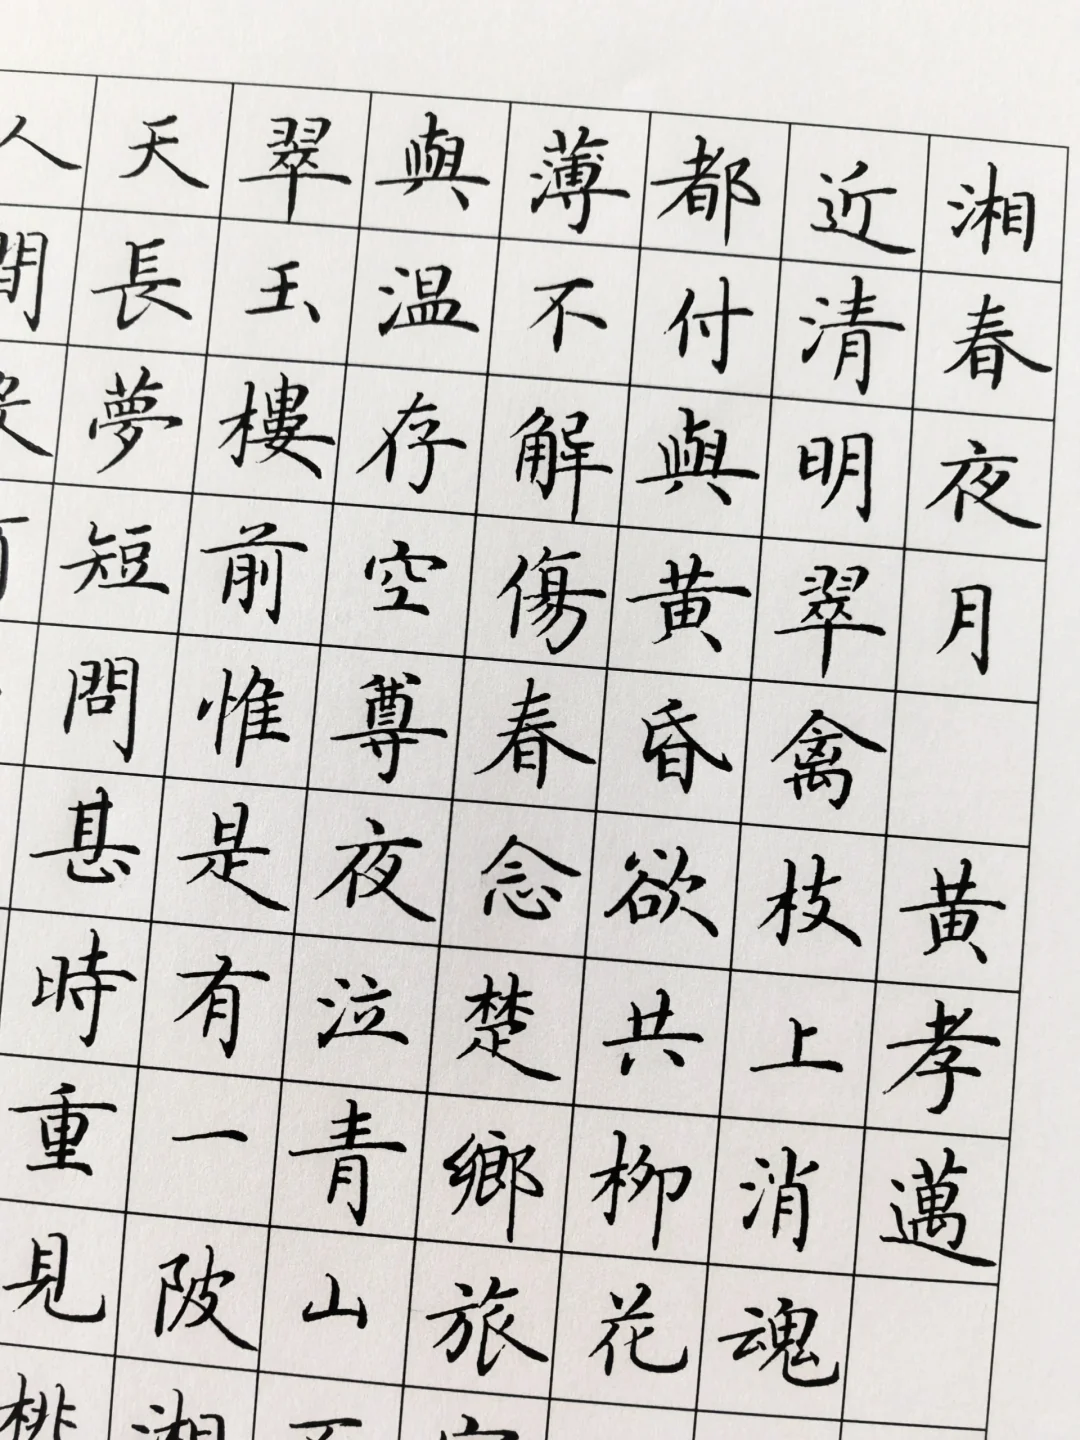 湘春夜月 黄孝邁
近清明翠禽枝上消魂
都付與黄昏欲共柳花
薄不解傷春念楚鄉旅
與温存空尊夜泣青山不
翠玉樓前惟是有一陂湘
天長夢短問甚時重見桃
人間